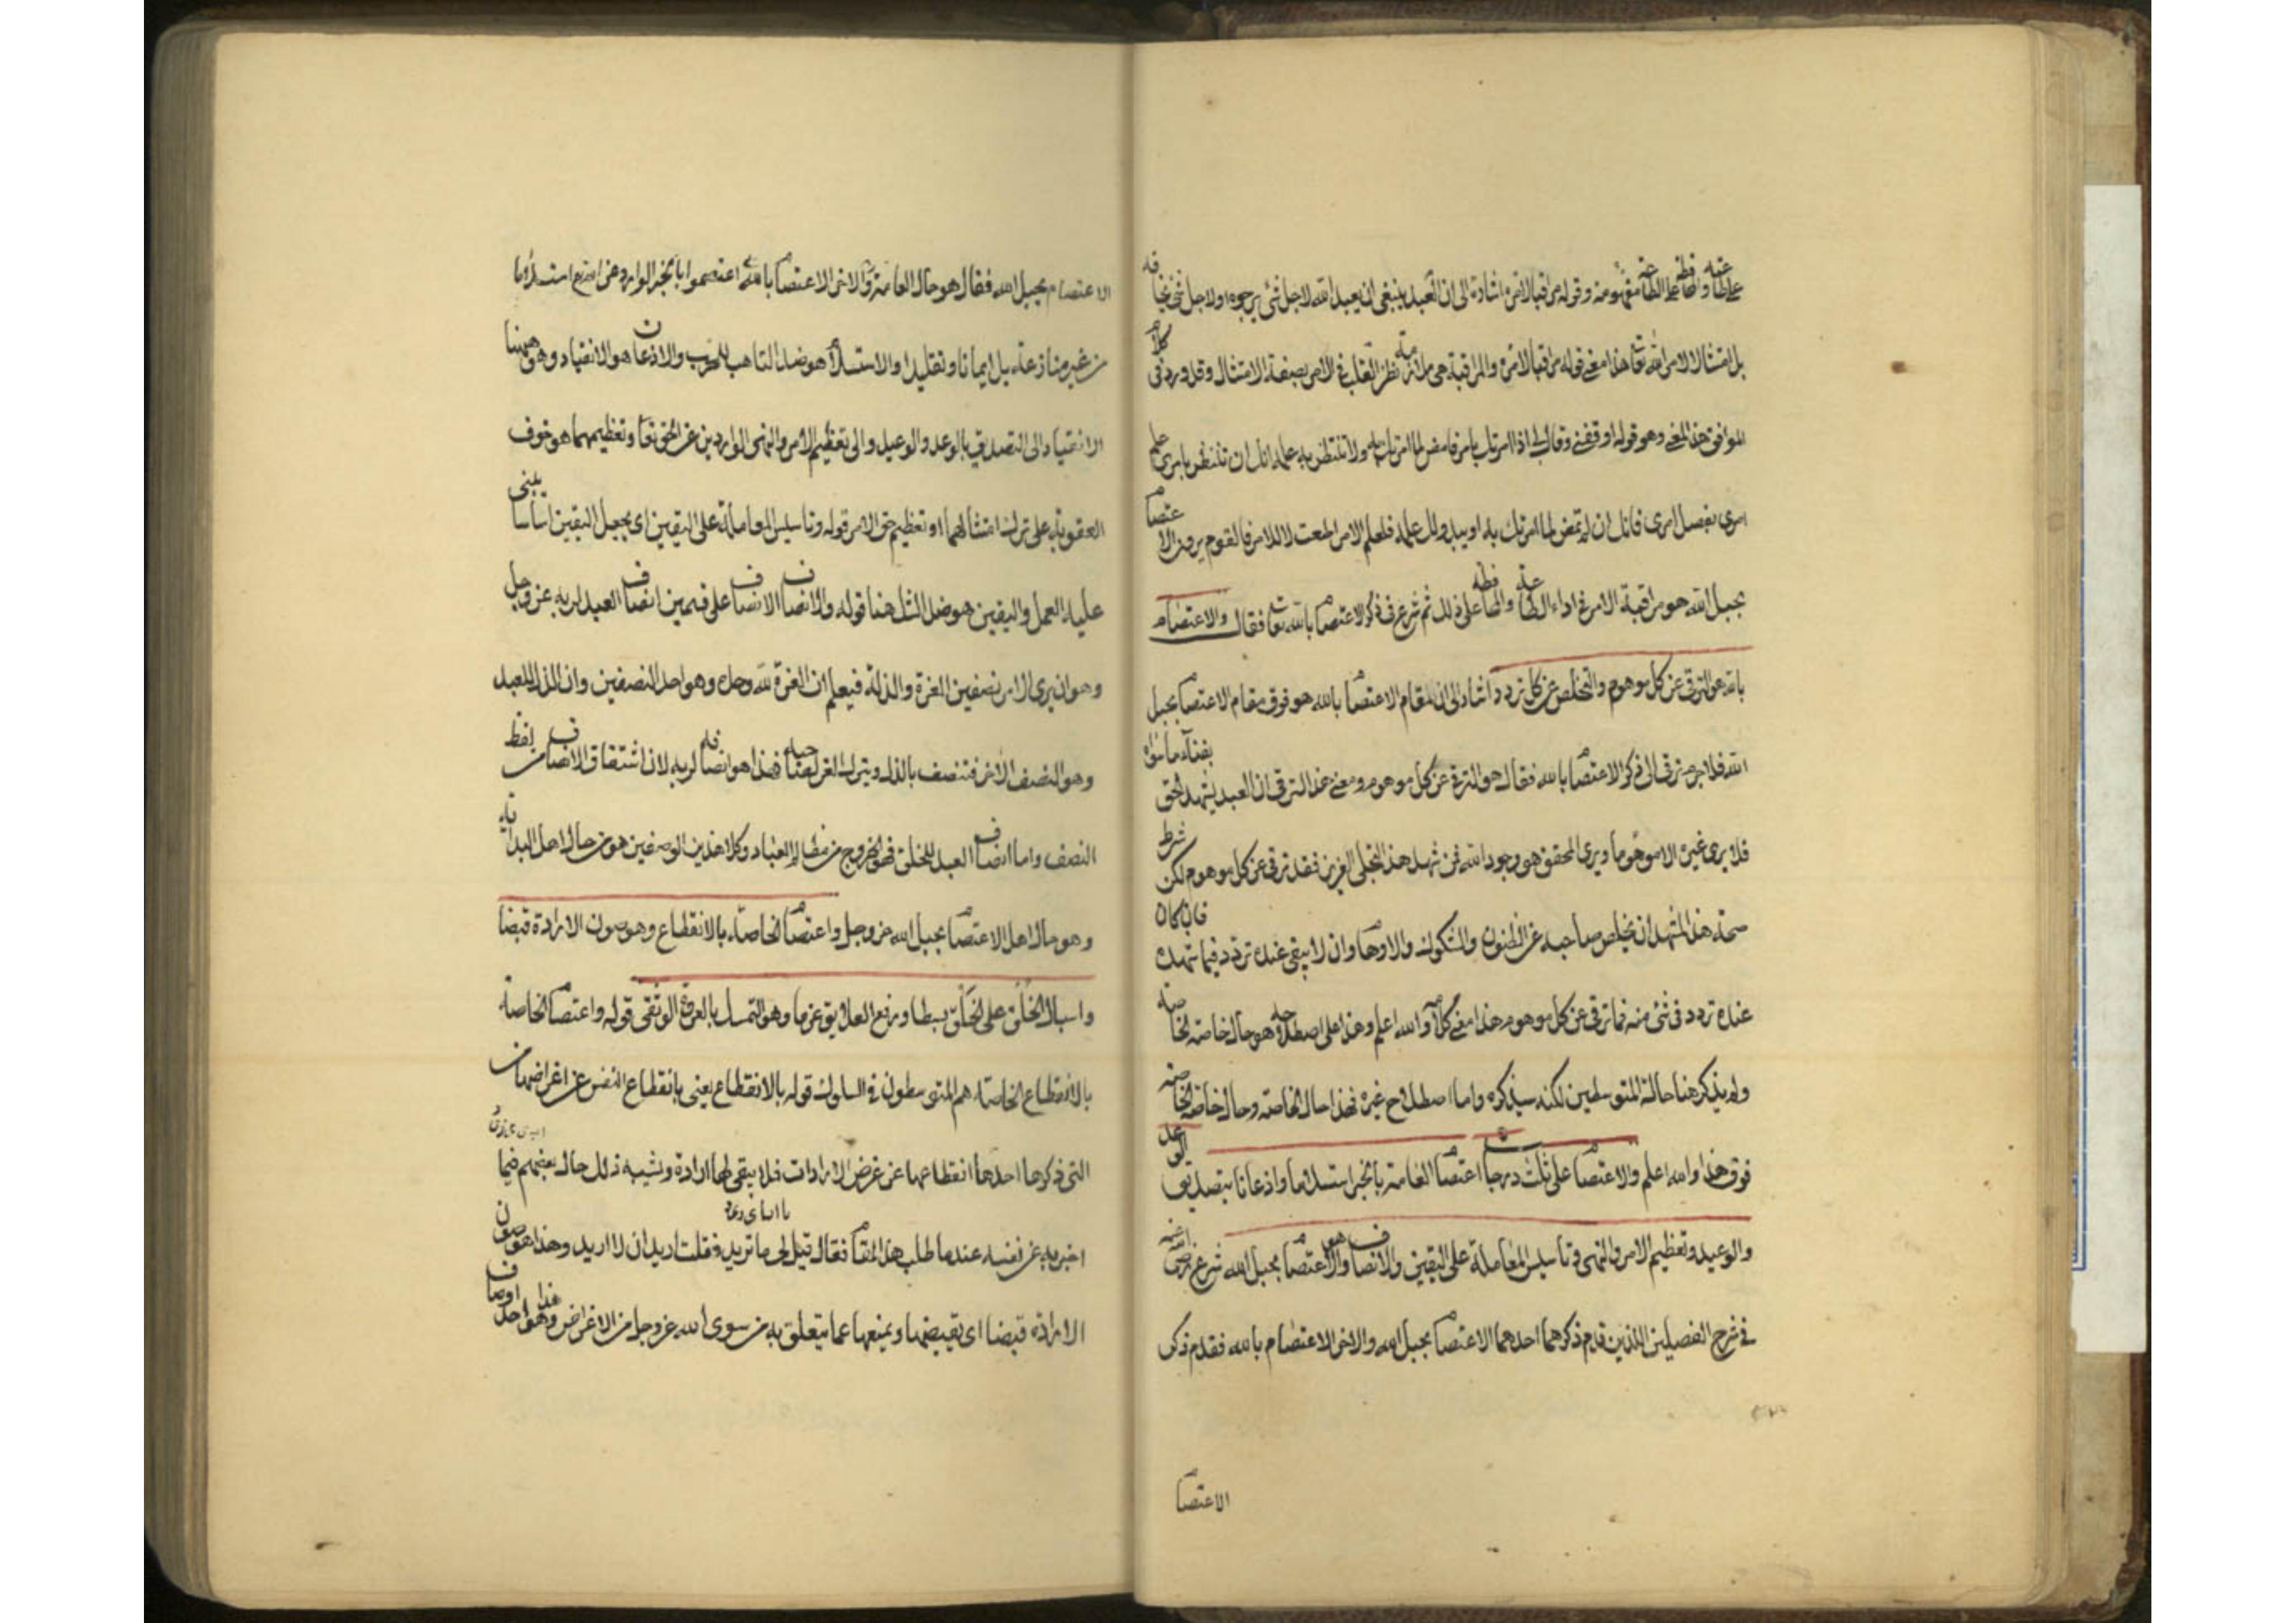 على طاعته والمحافظة على الطاعة مفهومة وقوله مراقبا لامره اشارة الى ان العبد ينبغي ان يعبد الله لا لاجل شئ يرجوه اولاجل شئ يخافه
بل امتثالا لامر الله تعا هذا معنى قوله مراقبا لامره والمراقبة هي ملازمة نظر القلب في الامر بصفة الامتثال وقد ورد في كلام
المواقف هذا المعنى وهو قوله اوقفني وقال لي اذا امرتك بامر فامض لما امرتك به ولا تنتظر به علمك انك ان تنتظر بامري علم
امري تعصى امري فانك ان لم تمض لما امرتك به او يبدو لك علمه فلعلم الامر اطعت لا للامر فالقوم يرون الاعتصام
بحبل الله هو مراقبة الامر في اداء الطاعة والمحافظة على ذلك ثم شرع في ذكر الاعتصام بالله تعا فقال والاعتصام
بالله هو الترقي عن كل موهوم والتخلص عن كل تردد اشار الى ان مقام الاعتصام بالله هو فوق مقام الاعتصام بحبل
الله فلا جرم ترقى الى ذكر الاعتصام بالله فقال هو الترقي عن كل موهوم ومعنى هذا الترقي ان العبد يشهد الحق بفناء ما سواه
فلا يرى غيره الا موهوما ويرى المحقق هو وجود الله فمن شهد هذا التجلي العزيز فقد ترقى عن كل موهوم لكن شرط
صحة هذا المشهد ان يخلص صاحبه عن الظنون والشكوك والاوهام وان لا يبقى عنده تردد فيما شهده فان كان
عنده تردد في شئ منه فما ترقى عن كل موهوم هذا معنى كلامه والله اعلم وهذا على اصطلاحه هو حال خاصة الخاصة
ولم يذكر هنا حالة المتوسطين لكنه سيذكره واما اصطلاح غيره فهذا حال الخاصة وحال خاصة الخاصة
فوق هذا والله اعلم والاعتصام على ثلث درجات اعتصام العامة بالخبر استسلاما واذعانا بتصديق الوعد
والوعيد وتعظيم الامر والنهي وتاسيس المعاملة على اليقين والانصاف وهو الاعتصام بحبل الله شرع رضى الله عنه
في شرح الفصلين اللذين قدم ذكرهما احدهما الاعتصام بحبل الله والاخر الاعتصام بالله فقدم ذكر
الاعتصام
الاعتصام بحبل الله فقال هو حال العامة والاخر الاعتصام بالله اعتصموا بالخبر الوارد عن الله تع استسلاما
من غير منازعة بل ايمانا وتقليدا والاستسلام هو ضد التاهب للحرب والاذعان هو الانقياد وهو ههنا
الانقياد الى التصديق بالوعد والوعيد والى تعظيم الامر والنهي الواردين عن الحق تعا وتعظيمهما هو خوف
العقوبة على ترك امتثالهما او تعظيم حق الامر قوله وتاسيس المعاملة على اليقين اى يجعل اليقين اساسا يبنى
عليه العمل واليقين هو ضد الشك هنا قوله والانصاف الانصاف على قسمين انصاف العبد لربه عز وجل
وهو ان يرى الامر نصفين العزة والذلة فيعلم ان العزة لله وحده وهو احد النصفين وان الذل للعبد
وهو النصف الاخر فتنصف بالذل ويترك العز لصاحبه فهذا هو انصافه لربه لان اشتقاق الانصاف من لفظ
النصف واما انصاف العبد للخلق فهو الخروج من مظالم العباد وكلا هذين الوصفين هو من حال اهل البداية
وهو حال اهل الاعتصام بحبل الله عز وجل واعتصام الخاصة بالانقطاع وهو صون الارادة قبضا
واسبال الخلق على الخلق بسطا ورفع العلايق عزما وهو التمسك بالعروة الوثقى قوله واعتصام الخاصة
بالانقطاع الخاصة هم المتوسطون في السلوك قوله بالانقطاع يعني بانقطاع النفس عن اغراضها
التي ذكرها احدها انقطاعها عن غرض الارادات فلا يبقى لها ارادة ويشبه ذلك حال بعضهم فيما
اخبر به عن نفسه عند ما طلب هذا المقام فقال قيل لي ما تريد فقلت اريد ان لا اريد وهذا هو صون
الارادة قبضا اى يقبضها ويمنعها عما يتعلق به من سوى الله عز وجل من الاغراض وهذا هو احد اوصاف